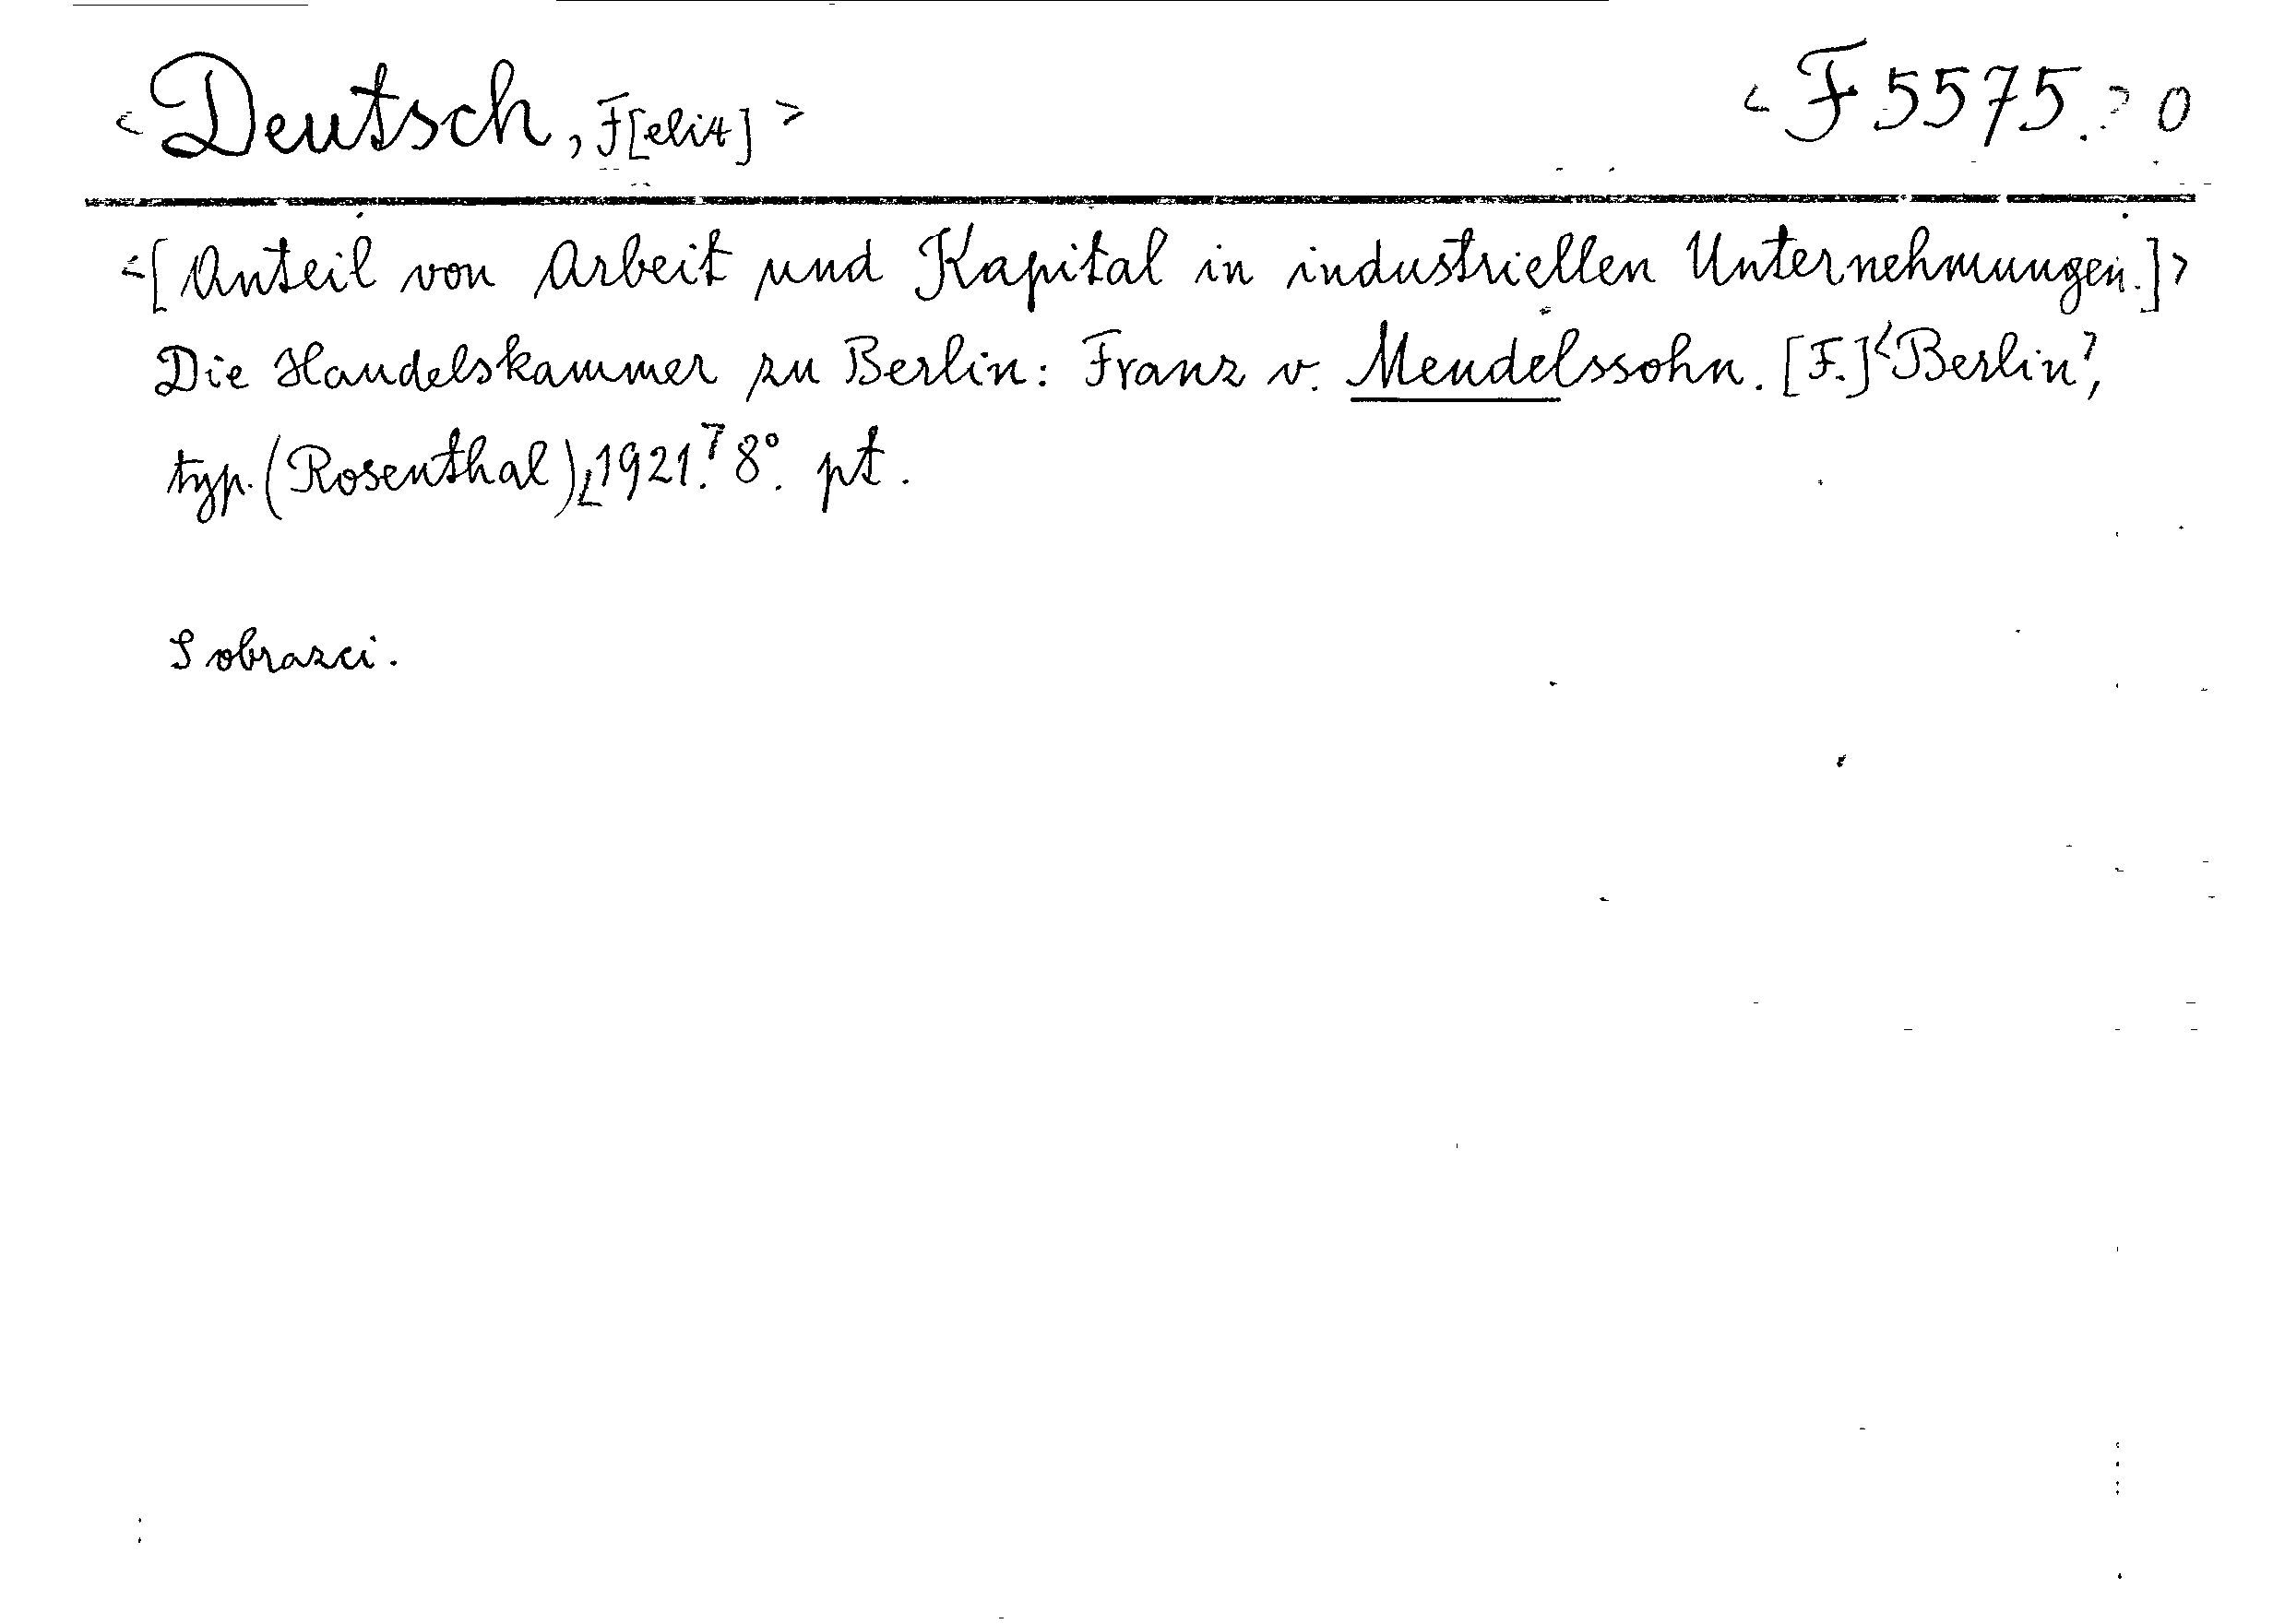 <Deutsch, F[elix]> <F 5575.> 0
<[Anteil von Arbeit und Kapital in industriellen Unternehmungen.]>
Die Handelskammer zu Berlin: Franz v. Mendelssohn. [F.] <Berlin>,
typ. (Rosenthal), [1921.] 8°. pt.
S obrazci.